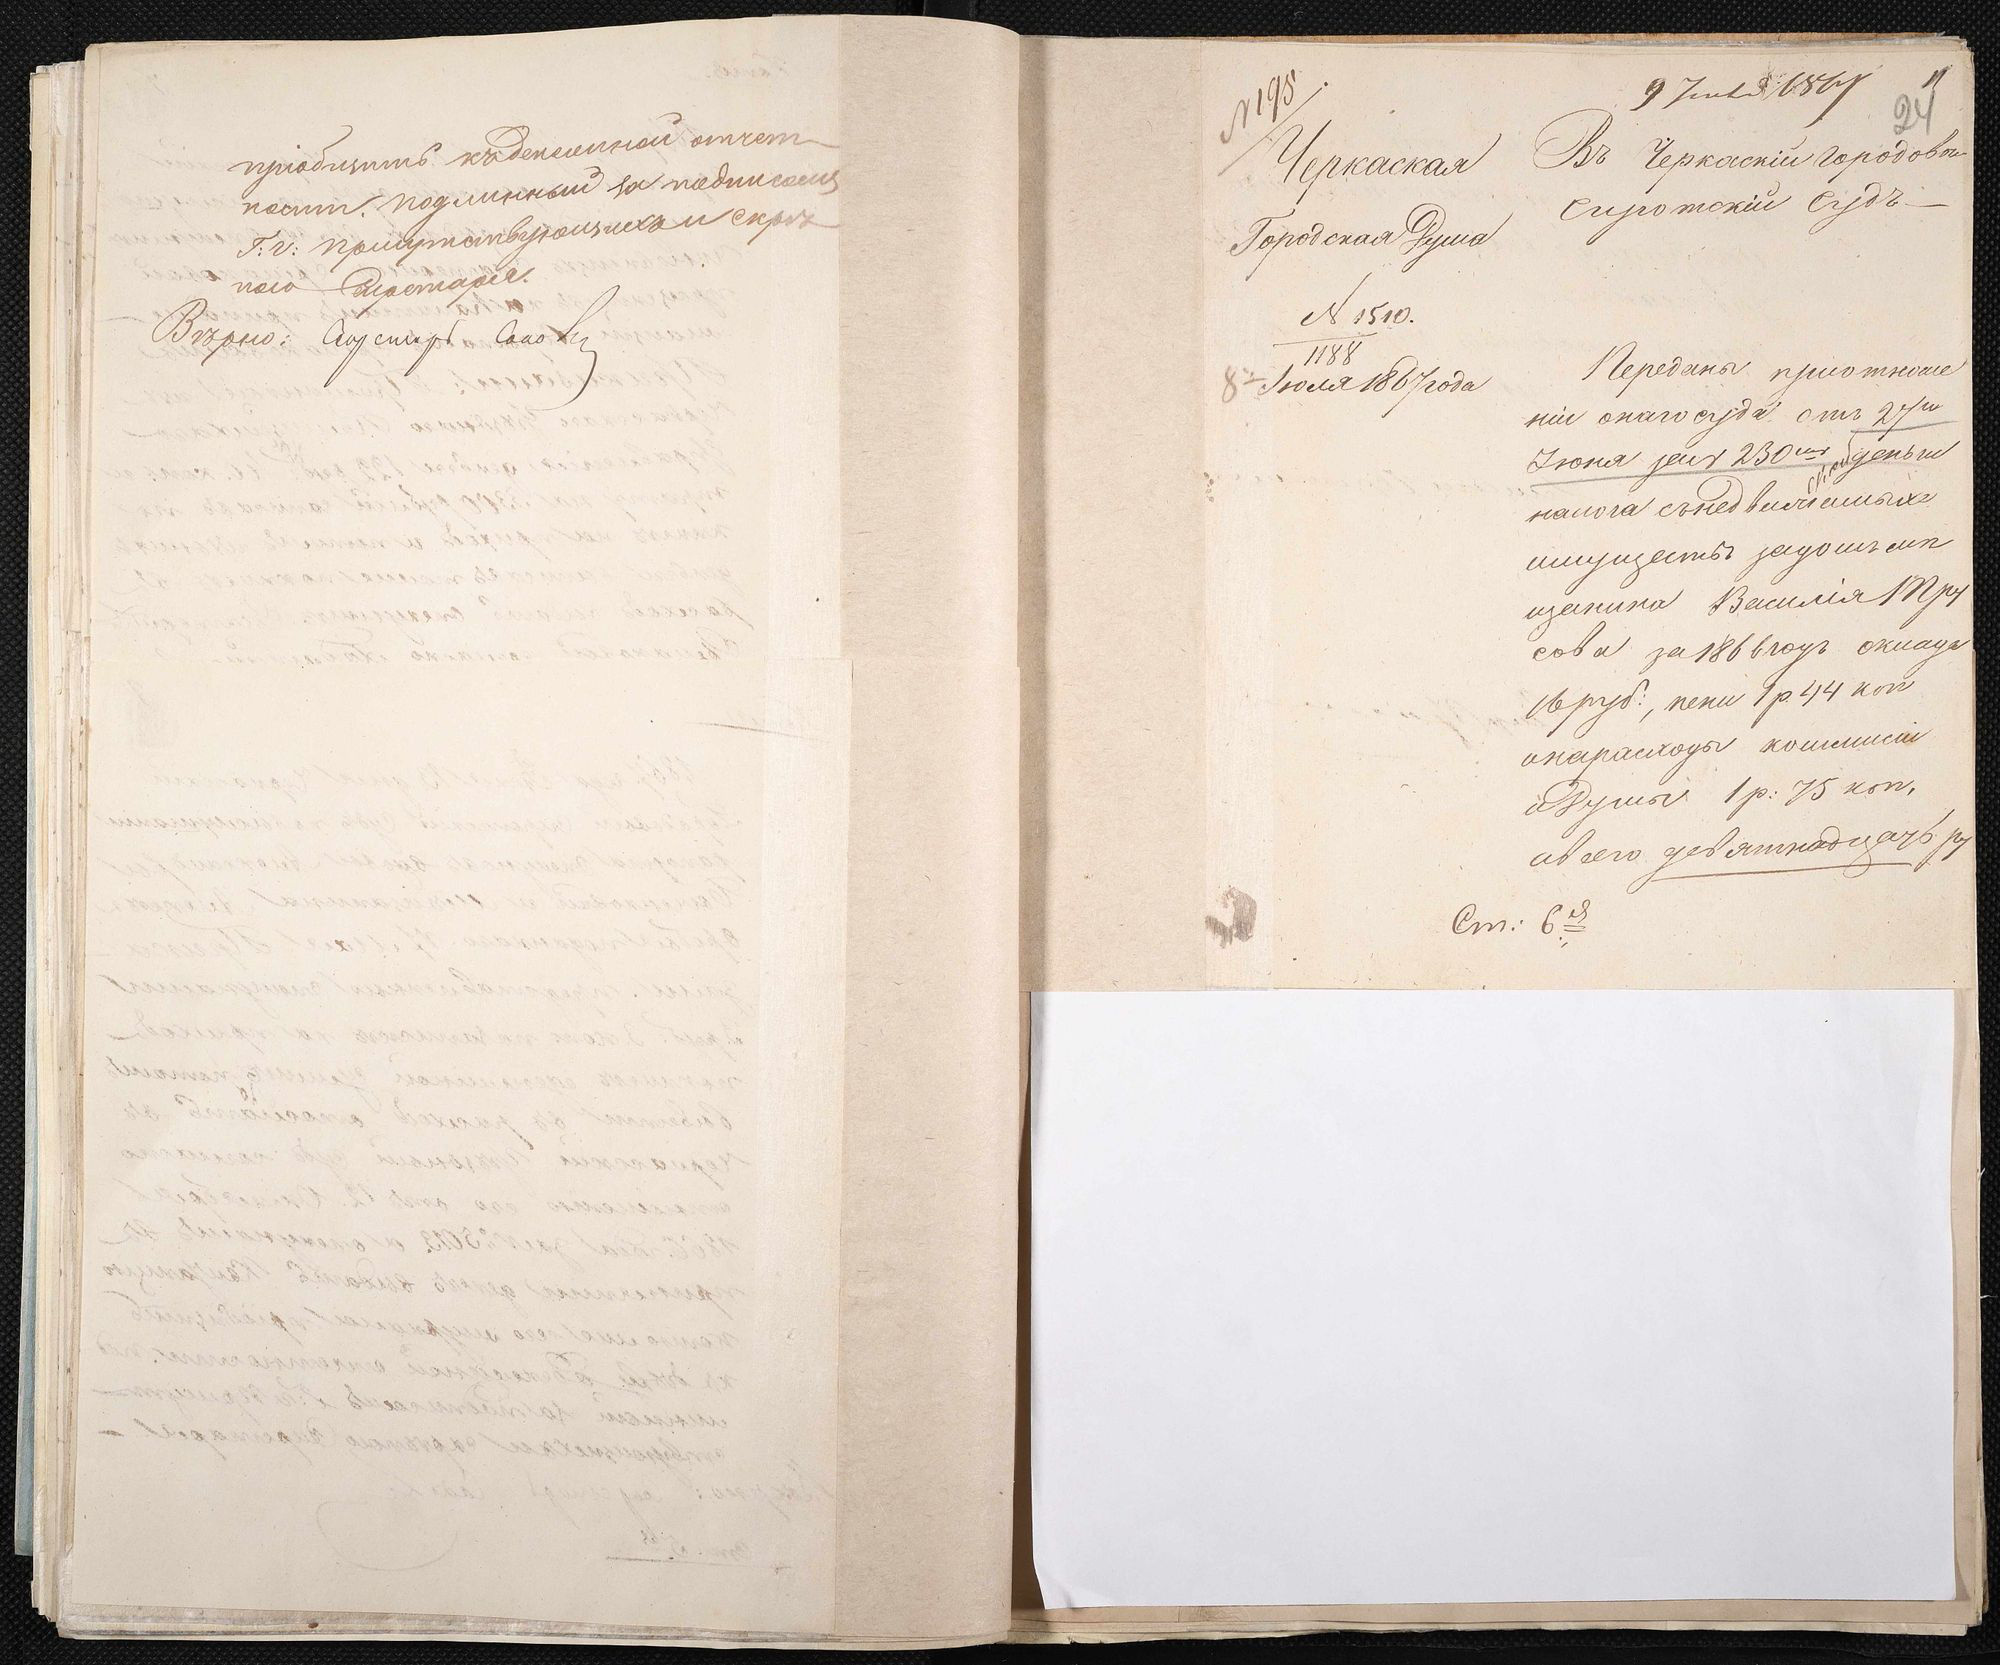 пріобщить къ денежной отчет-
ности. Подлинный за подписомъ
Г.г: присутствующихъ и скрѣ-
пою Секретаря.
Вѣрно: Секретарь
№ 195
9 Іюля 1867
11
24
Черкаская
Городская Дума
№ 1510.
1188
8 Іюля 1867 года
Въ Черкаскій городовой
Сиротскій Судъ
Переданы приотноше
ніи онаго суда отъ 27го
Іюня за № 230мъ деньги
налога съ недвижимыхъ
имуществъ задомъ мѣ
щанина Василія Тру
сова за 1866 годъ окладу
16 руб:, пени 1 р. 44 коп
и на расходы коммисіи
и Думы 1 р: 75 коп,
а всего девятнадцать ру
Ст: 6я